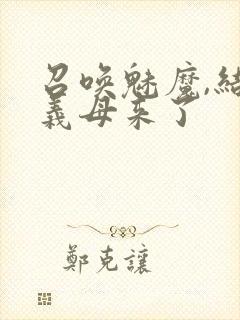 召唤魅魔,结
義母来了
鄭克讓